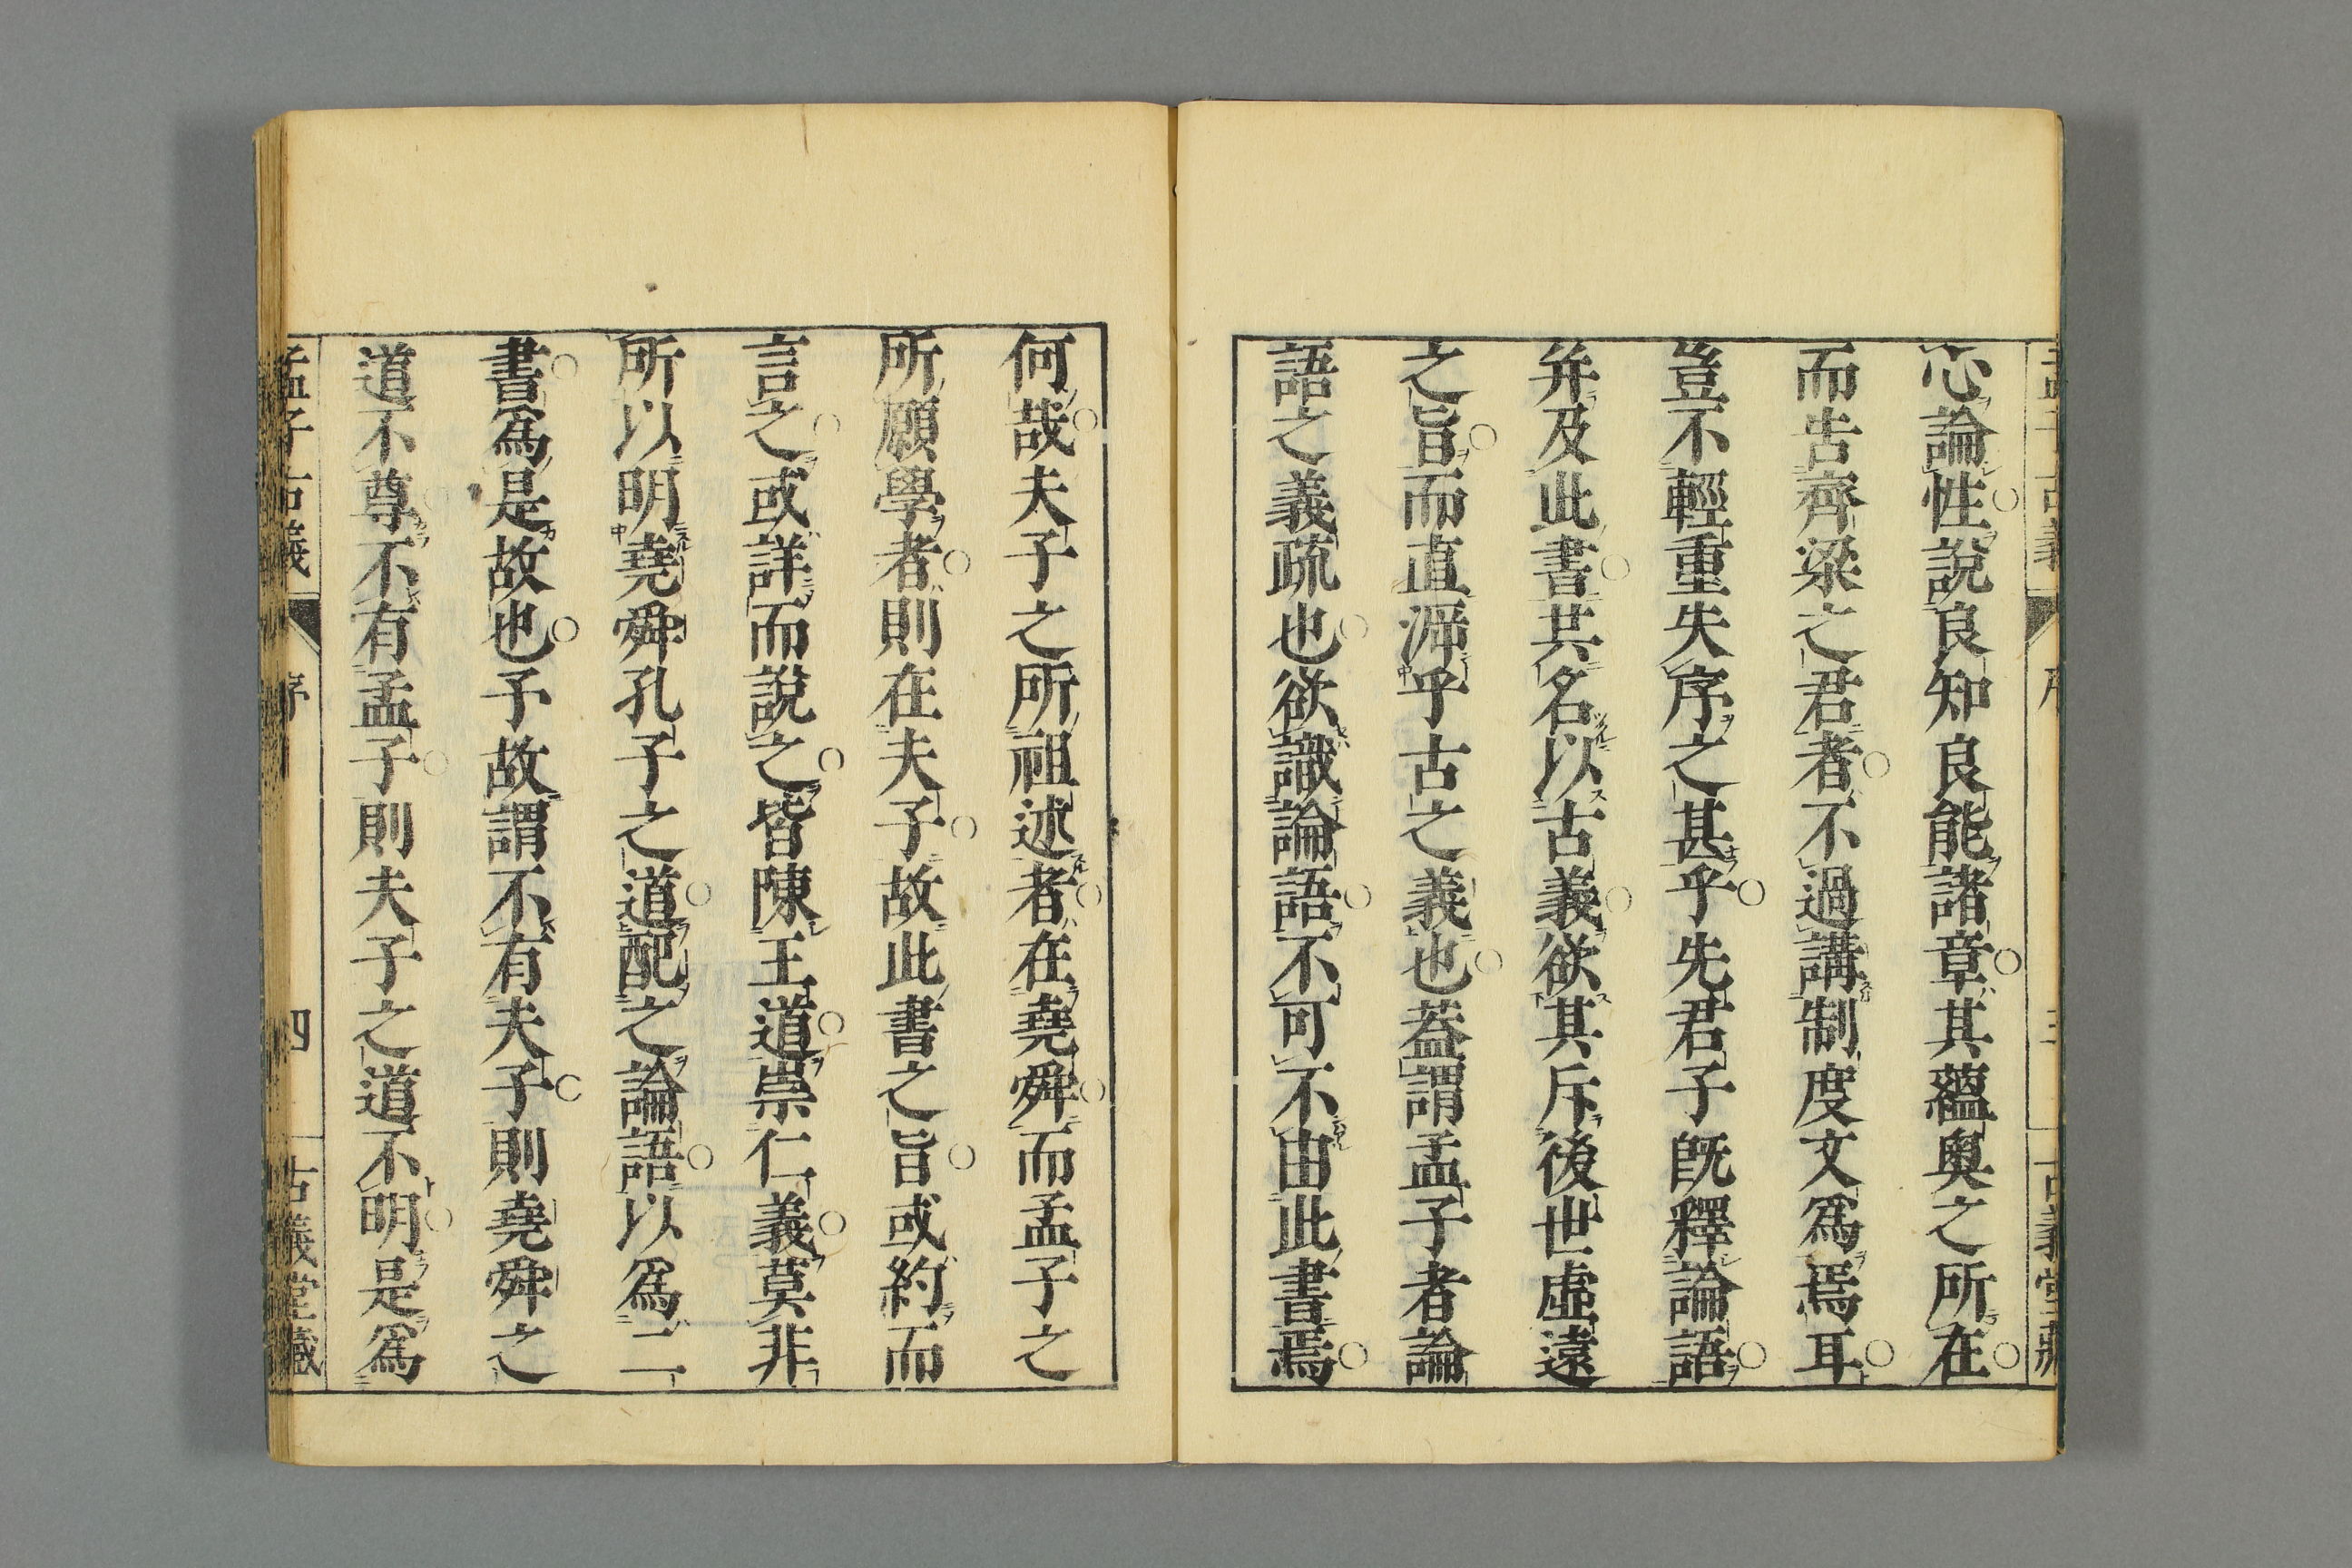 心論性說良知良能諸章其蘊奧之所在
而告齊梁之君者不過講制度文爲焉耳
豈不輕重失序之甚乎先君子旣釋論語
幷及此書其名以古義欲其斥後世虛遠
之旨而直泝乎古之義也蓋謂孟子者論
語之義疏也欲識論語不可不由此書焉
何哉夫子之所祖述者在堯舜而孟子之
所願學者則在夫子故此書之旨或約而
言之或詳而說之皆陳王道崇仁義莫非
所以明堯舜孔子之道配之論語以爲二
書爲是故也予故謂不有夫子則堯舜之
道不尊不有孟子則夫子之道不明是爲
孟子古義 序 四 古義堂藏